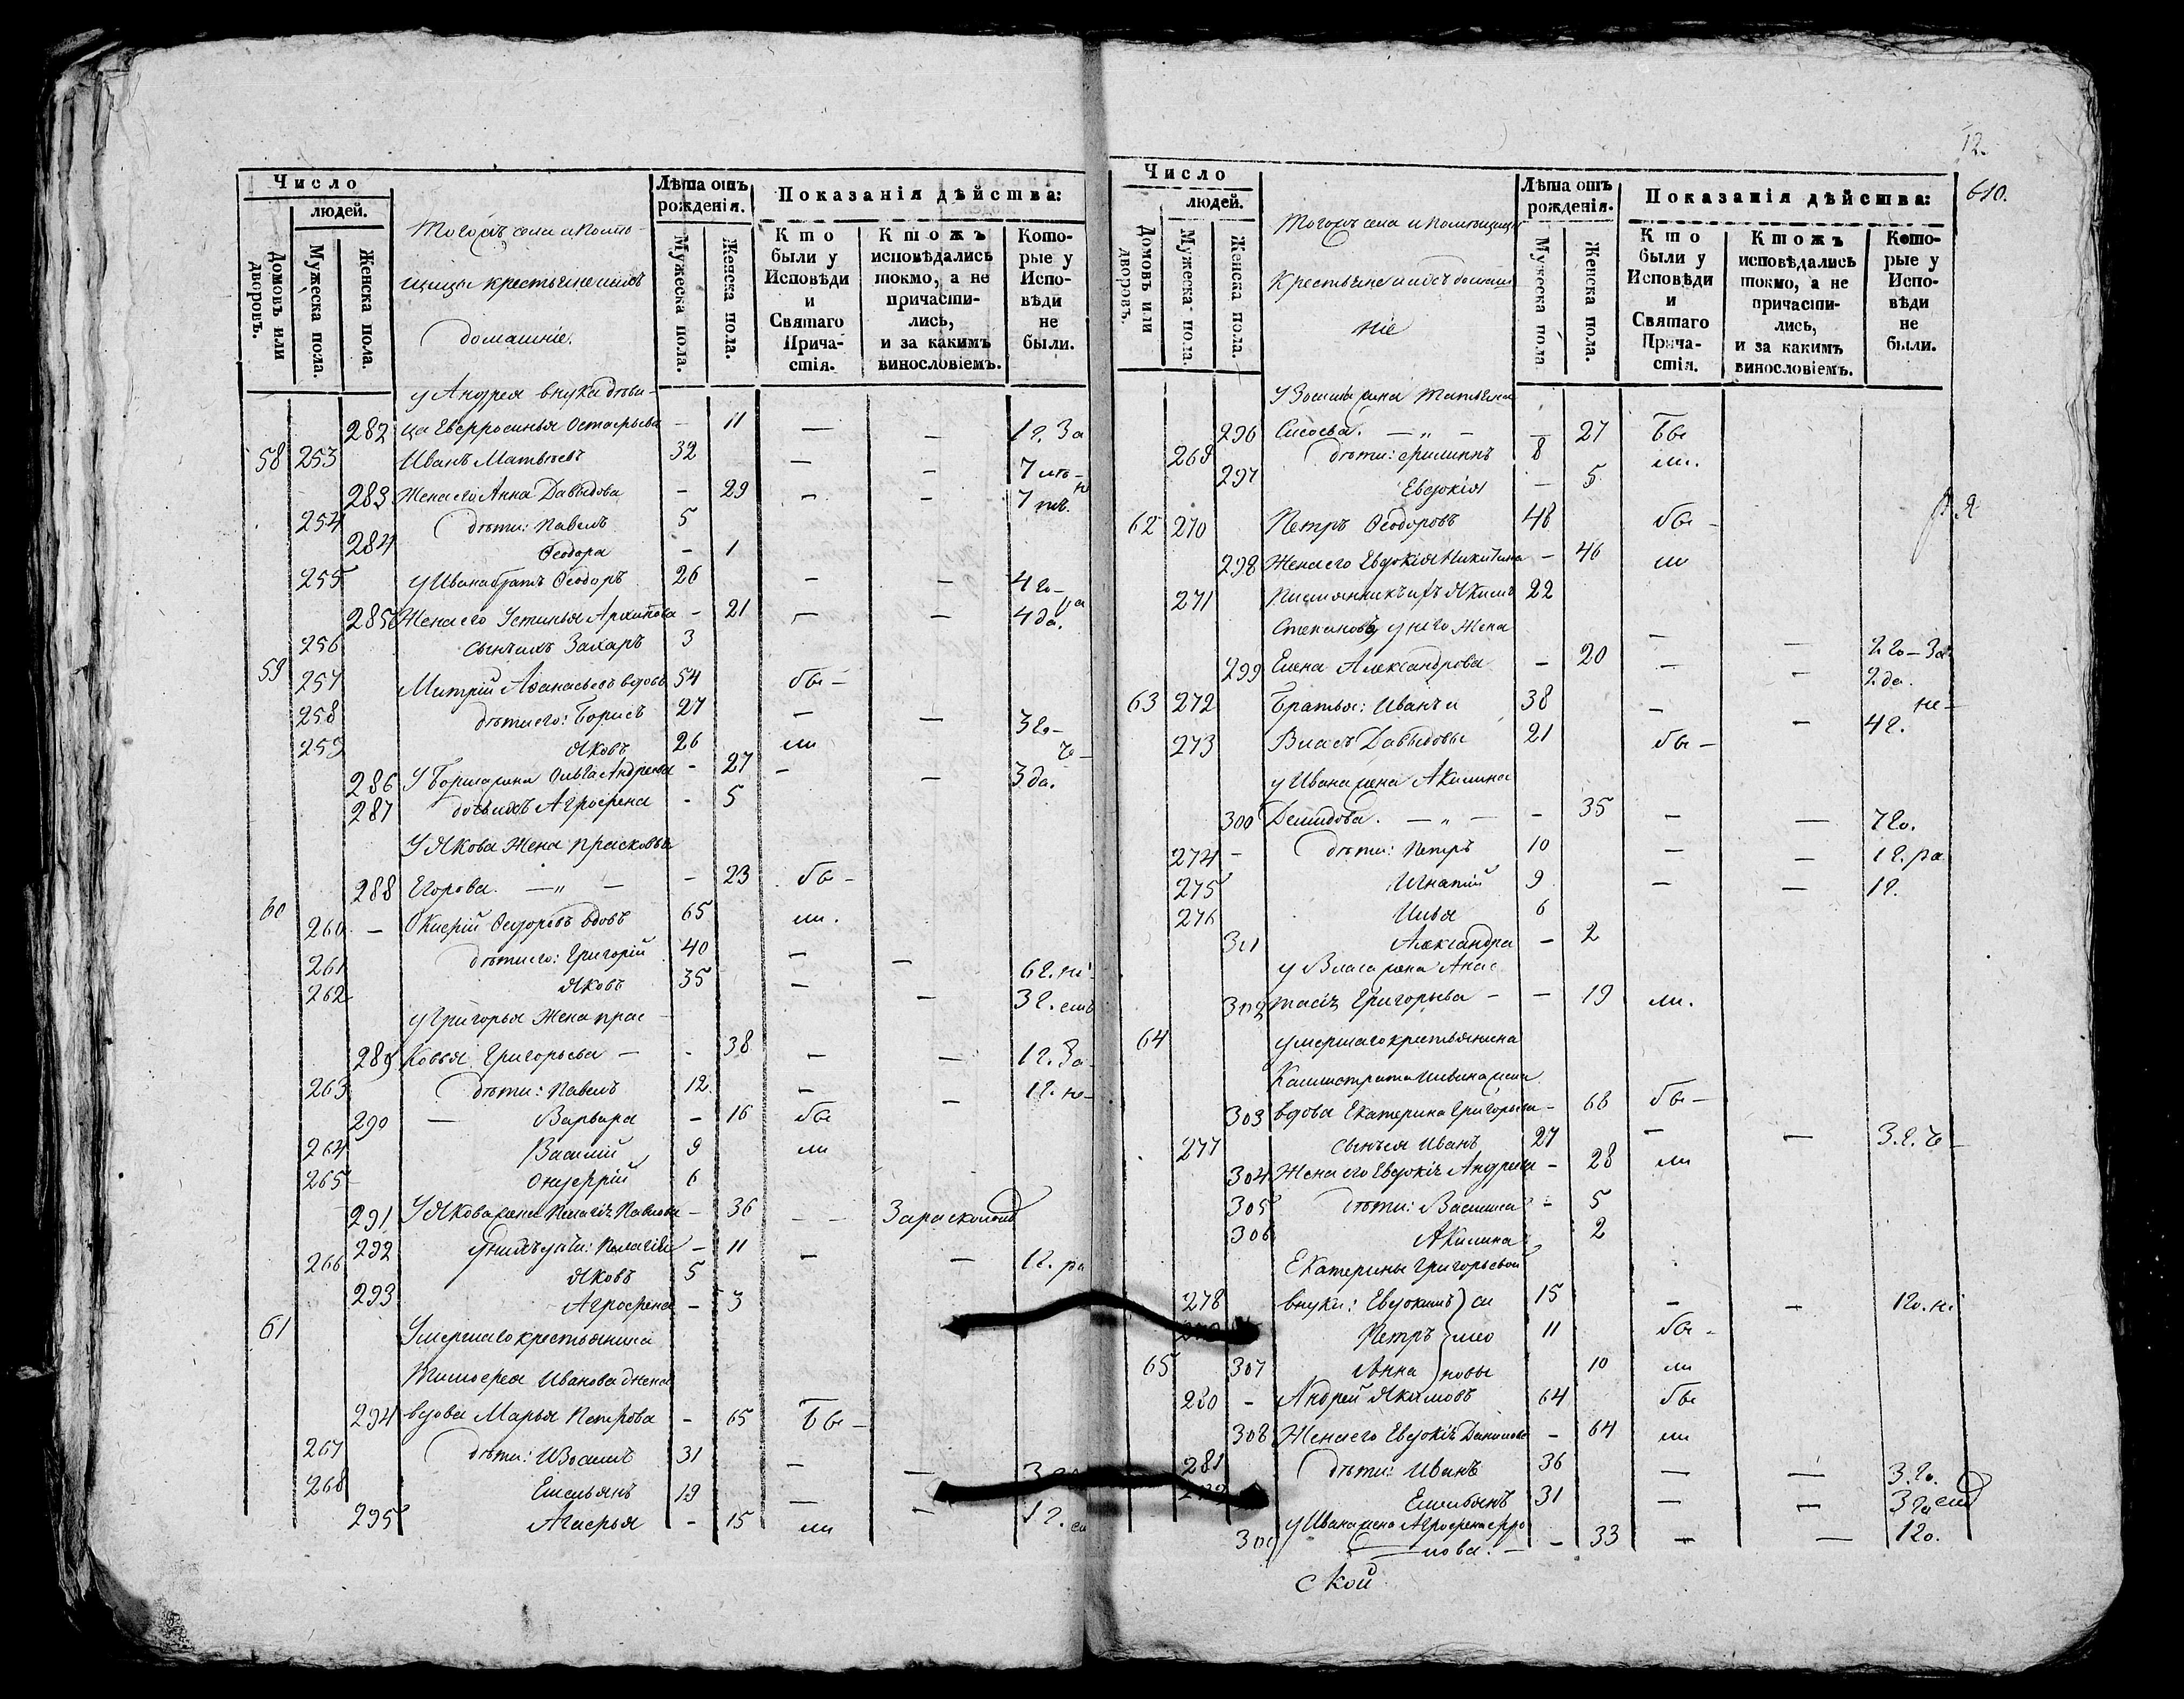 Число
людей.
Домовъ или дворовъ.
Мужеска пола.
Женска пола.
Тогожъ села и помѣ-
щицы крестьяне ихъ
домашніе.
Лѣта отъ рожденія.
Мужеска пола.
Женска пола.
Показанія дѣйства:
Кто были у Исповѣди и Святаго Причастія.
Ктожъ исповѣдались токмо, а не причастились, и за какимъ винословіемъ.
Которые у Исповѣди не были.
у Андрея внука дѣви-
282 ца Евфросинья Остафьева - 11 — — 1 г. За
58 253 Иванъ Матвѣевъ 32 — —
283 Жена его Анна Давыдова - 29 - -
254 дѣти: Павелъ 5
284 Ѳеодора - 1
255 у Ивана братъ Ѳеодоръ 26 — — 4 го-
285 Жена его Устинья Архипова - 21 — — 4 да.
256 сынъ ихъ Захаръ 3
59 257 Митрій Аѳанасьевъ вдовъ 54 бы-
258 дѣти его: Борисъ 27 — — 3 го-
259 Яковъ 26 ли
286 У Бориса жена Ольга Андреева - 27 — — 3 да.
287 дочь ихъ Агрофена - 5
У Якова Жена Прасковья
288 Егорова. —„— - 23 бы-
60 260 — Окисфій Ѳедоровъ вдовъ 65 ли.
261 дѣти его: Григорій 40 — — 6 г. не
262 Яковъ 35 — — 3 г.
у Григорья Жена Прас-
289 ковья Григорьева — - 38 — — 1 г. За-
263 дѣти: Павелъ 12 — — 1 г. не-
290 — Варвара - 16 бы
264 Василій 9 ли
265 Онуфрій 6
291 У Якова жена Пелагія Павлова - 36 — — За расколомъ
292 У нихъ дѣти: Пелагія - 11 — — 1 г. ра
266 Яковъ 5
293 Агрофена - 3
61 Умершаго крестьянина
Тимофея Иванова жена
294 вдова Марья Петрова - 65 Бы-
267 дѣти: Изосимъ 31 — —
268 Емельянъ 19 — — 1 г.
295 Агафья - 15 ли
12.
610.
Число
людей.
Домовъ или дворовъ.
Мужеска пола.
Женска пола.
Тогожъ села и помѣщицы
Крестьяне и ихъ домаш
ніе
Лѣта отъ рожденія.
Мужеска пола
Женска пола.
Показанія дѣйства:
Кто были у Исповѣди и Святаго Причастія.
Ктожъ исповѣдались токмо, а не причастились, и за какимъ винословіемъ.
Которые у Исповѣди не были.
У Зосимы жена Татьяна
296 Сысоева. —„— — 27 Бы
269 дѣти: Филиппъ 8 ли.
297 Евдокія — 5
62 270 Петръ Ѳеодоровъ 48 бы-
298 Жена его Евдокія Никитина - 46 ли
271 Племянникъ ихъ Якимъ 22
Степановъ, у него Жена — — 2 го- За
299 Елена Александрова - 20 — — 2 да.
63 272 Братья: Иванъ и 38 — — 4 г. не-
273 Власъ Давыдовы 21 бы-
у Ивана жена Акилина
300 Демидова. —„— - 35 — — 7 го.
274 - дѣти: Петръ 10 — — 1 г. ра
275 Игнатій 9 — — 1 г.
276 Илья 6
301 Александра - 2
у Власа жена Анас
302 тасія Григорьева - - 19 ли.
64 умершаго крестьянина
Калистрата Ильина жена
303 вдова Екатерина Григорьева - 68 бы-
277 сынъ ея Иванъ 27 — — 3. г. че-
304 Жена его Евдокія Андреева - 28 ли
305 дѣти: Василиса - 5
306 Акилина 2
Екатерины Григорьевой
278 внуки: Евдокимъ } си 15 — — 1 го. не
Петръ } мео 11 бы-
65 307 Анна } новы 10 ли
280 - Андрей Якимовъ 64 бы
308 Жена его Евдокія Данилова - 64 ли
281 дѣти: Иванъ 36 — — 3. го.
Емельянъ 31 — — 3 го
у Ивана жена Агрофена Афро
нова. — - 33 — — 1 го.
ской